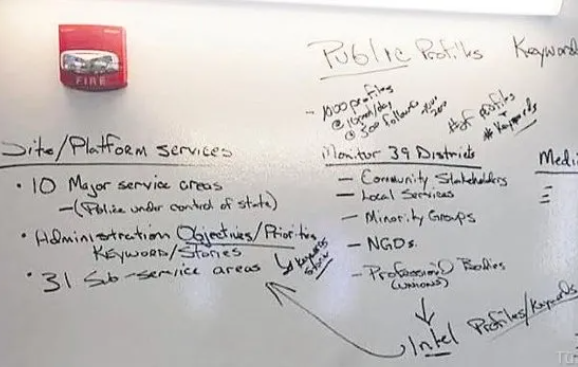 FIRE
Public Profiles
Keyword
- 1000 profiles
@ 10 post/day
@ 300 follow
# of profiles
# Keywords
Site/Platform services
• 10 Major service areas
- (Police under control of state)
• Administration Objectives/Priorities
KEYWORD/Stories
Keywords
• 31 Sub-service areas
Monitor 39 Districts
- Community Stakeholders
- Local Services
- Minority Groups
- NGOs.
- Professional Bodies
(UNIONS)
Intel Profiles/Keywords
Medi
Tu